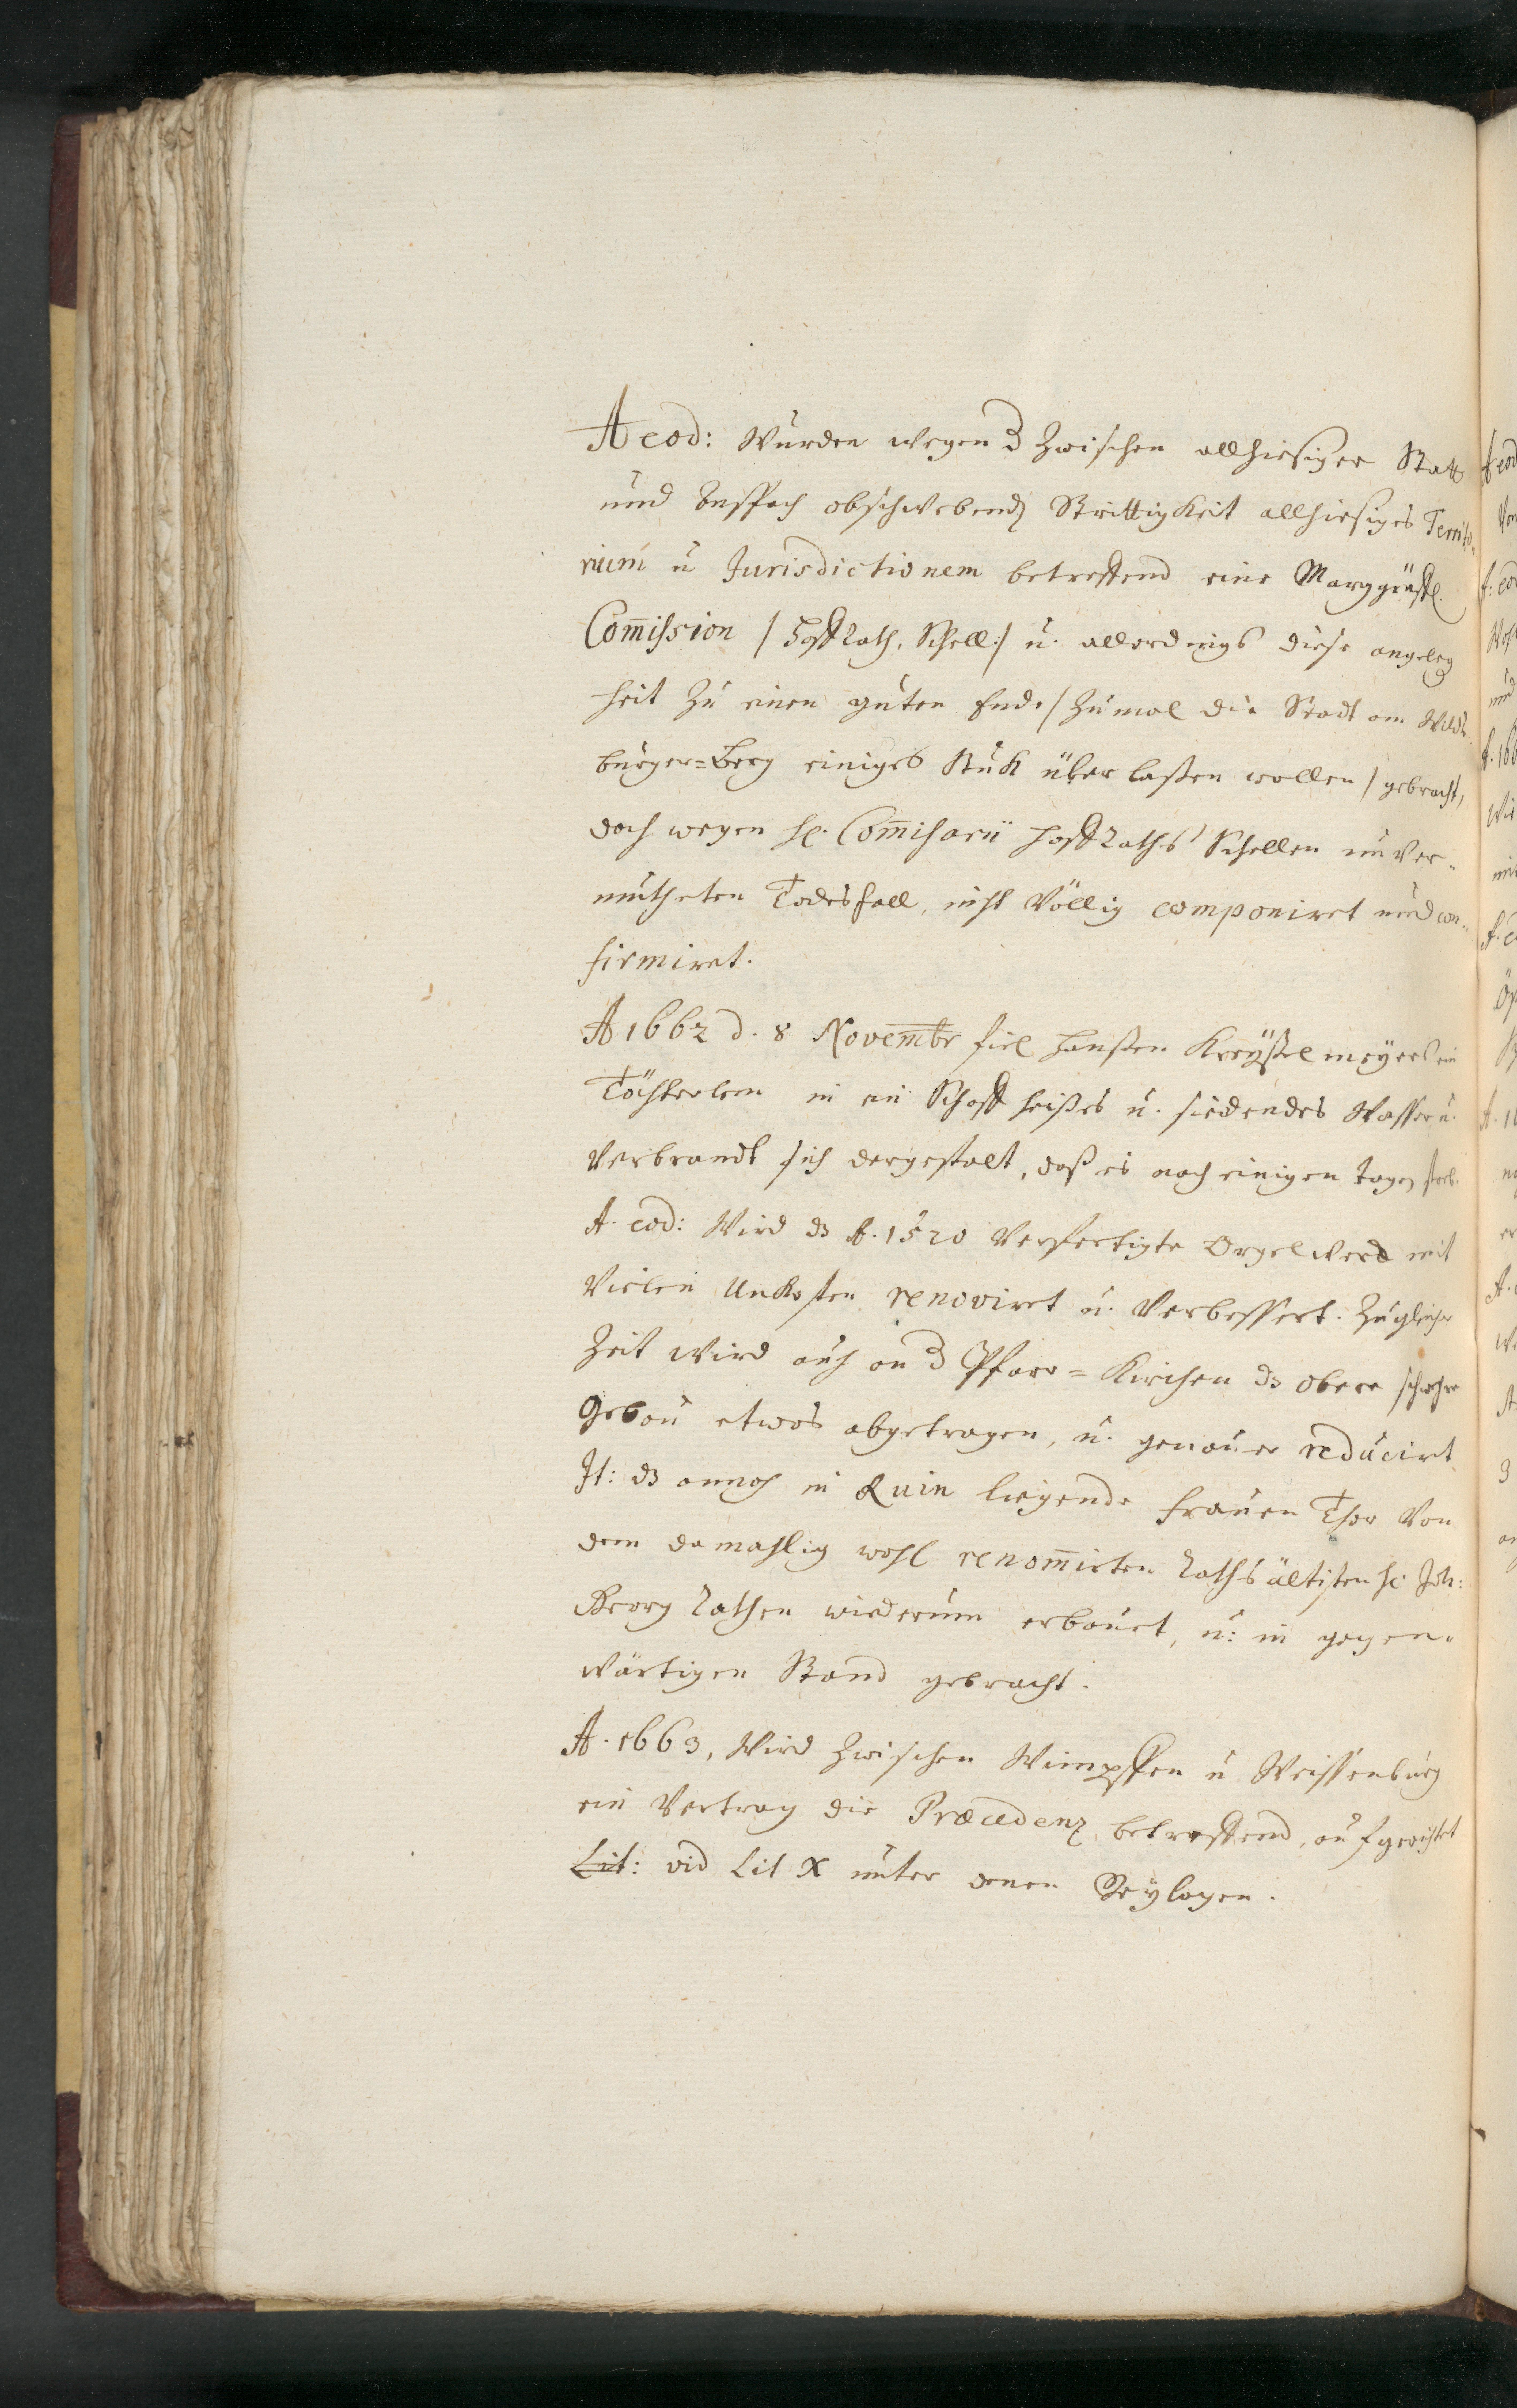 A eod: Wurden wegen d zwischen allhiesiger Statt
und Anspach obschwebende Strittigkeit allhiesiges Territo-
rium u Jurisdictionem betreffend eine Marggräfl.
Com̄ission / Hoff Rath, Schell:/ u. allerdings diese angeleg
heit zu einen guten End, / zumal die Stadt am Wildz
burger=Berg einiges Stuk über laßen wollen / gebracht,
doch wegen H. Com̄issarii Hoff Raths Schellen unver-
mutheten Todesfall, nicht Völlig componiret und con-
firmiret.
A 1662 d. 8 Novembr fiel Hanßen Kreysselmeyers ein
Töchterlein in ein Schaff heißes u. siedendes Wasser u.
Verbrandt sich dergestalt, daß es nach einigen tagen starb.
A. eod: Wird dz A. 1520 Verfertigte Orgelwerck mit
Vielen Unkosten renoviret u. Verbessert. Zugleicher
Zeit Wird auch an d Pfarr=Kirchen dz obere schwehre
Gebäu etwas abgetragen, u. genauer reducirt
It: dz annoch in Ruin liegende Frauen Thor Von
dem damahlig wohl renom̄irten Raths ältisten H. Joh:
Georg Rathen wiederum erbauet, u: in gegen-
wärtigen Stand gebracht.
A. 1663, Wird zwischen Wimpffen u Weissenburg
ein Vertrag die Præcedenz betreffend, aufgericht
Lit: vid Lit X unter denen Beylagen.